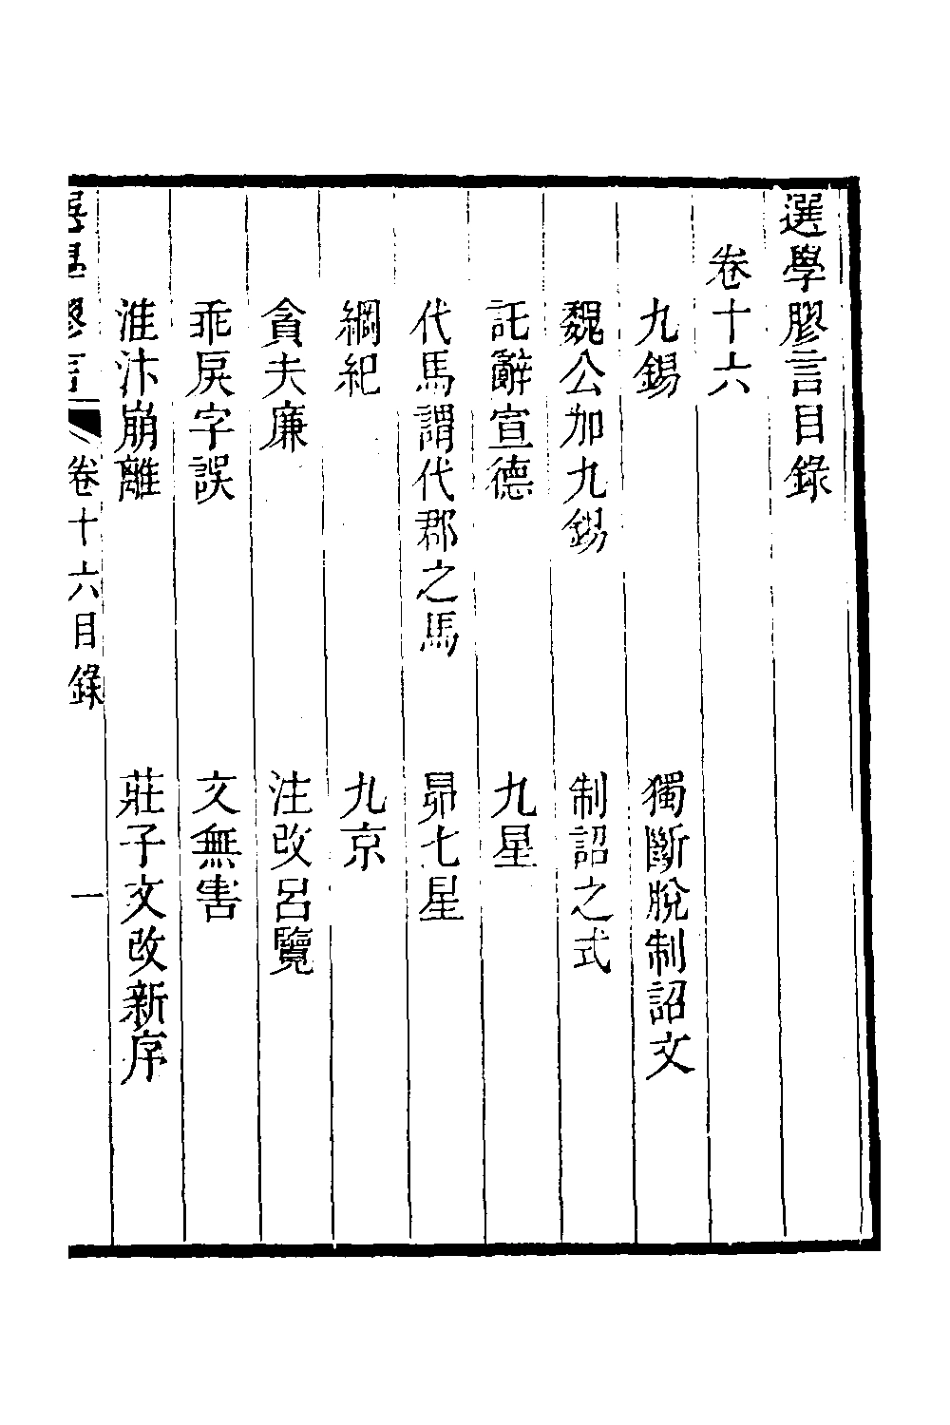 選學膠言目錄
卷十六
九錫
獨斷脫制詔文
魏公加九錫
制詔之式
託辭宣德
九星
代馬謂代郡之馬
昴七星
綱紀
九京
貪夫廉
注改呂覽
乖戾字誤
文無害
淮汴崩離
莊子文改新序
選學膠言
卷十六目錄
一